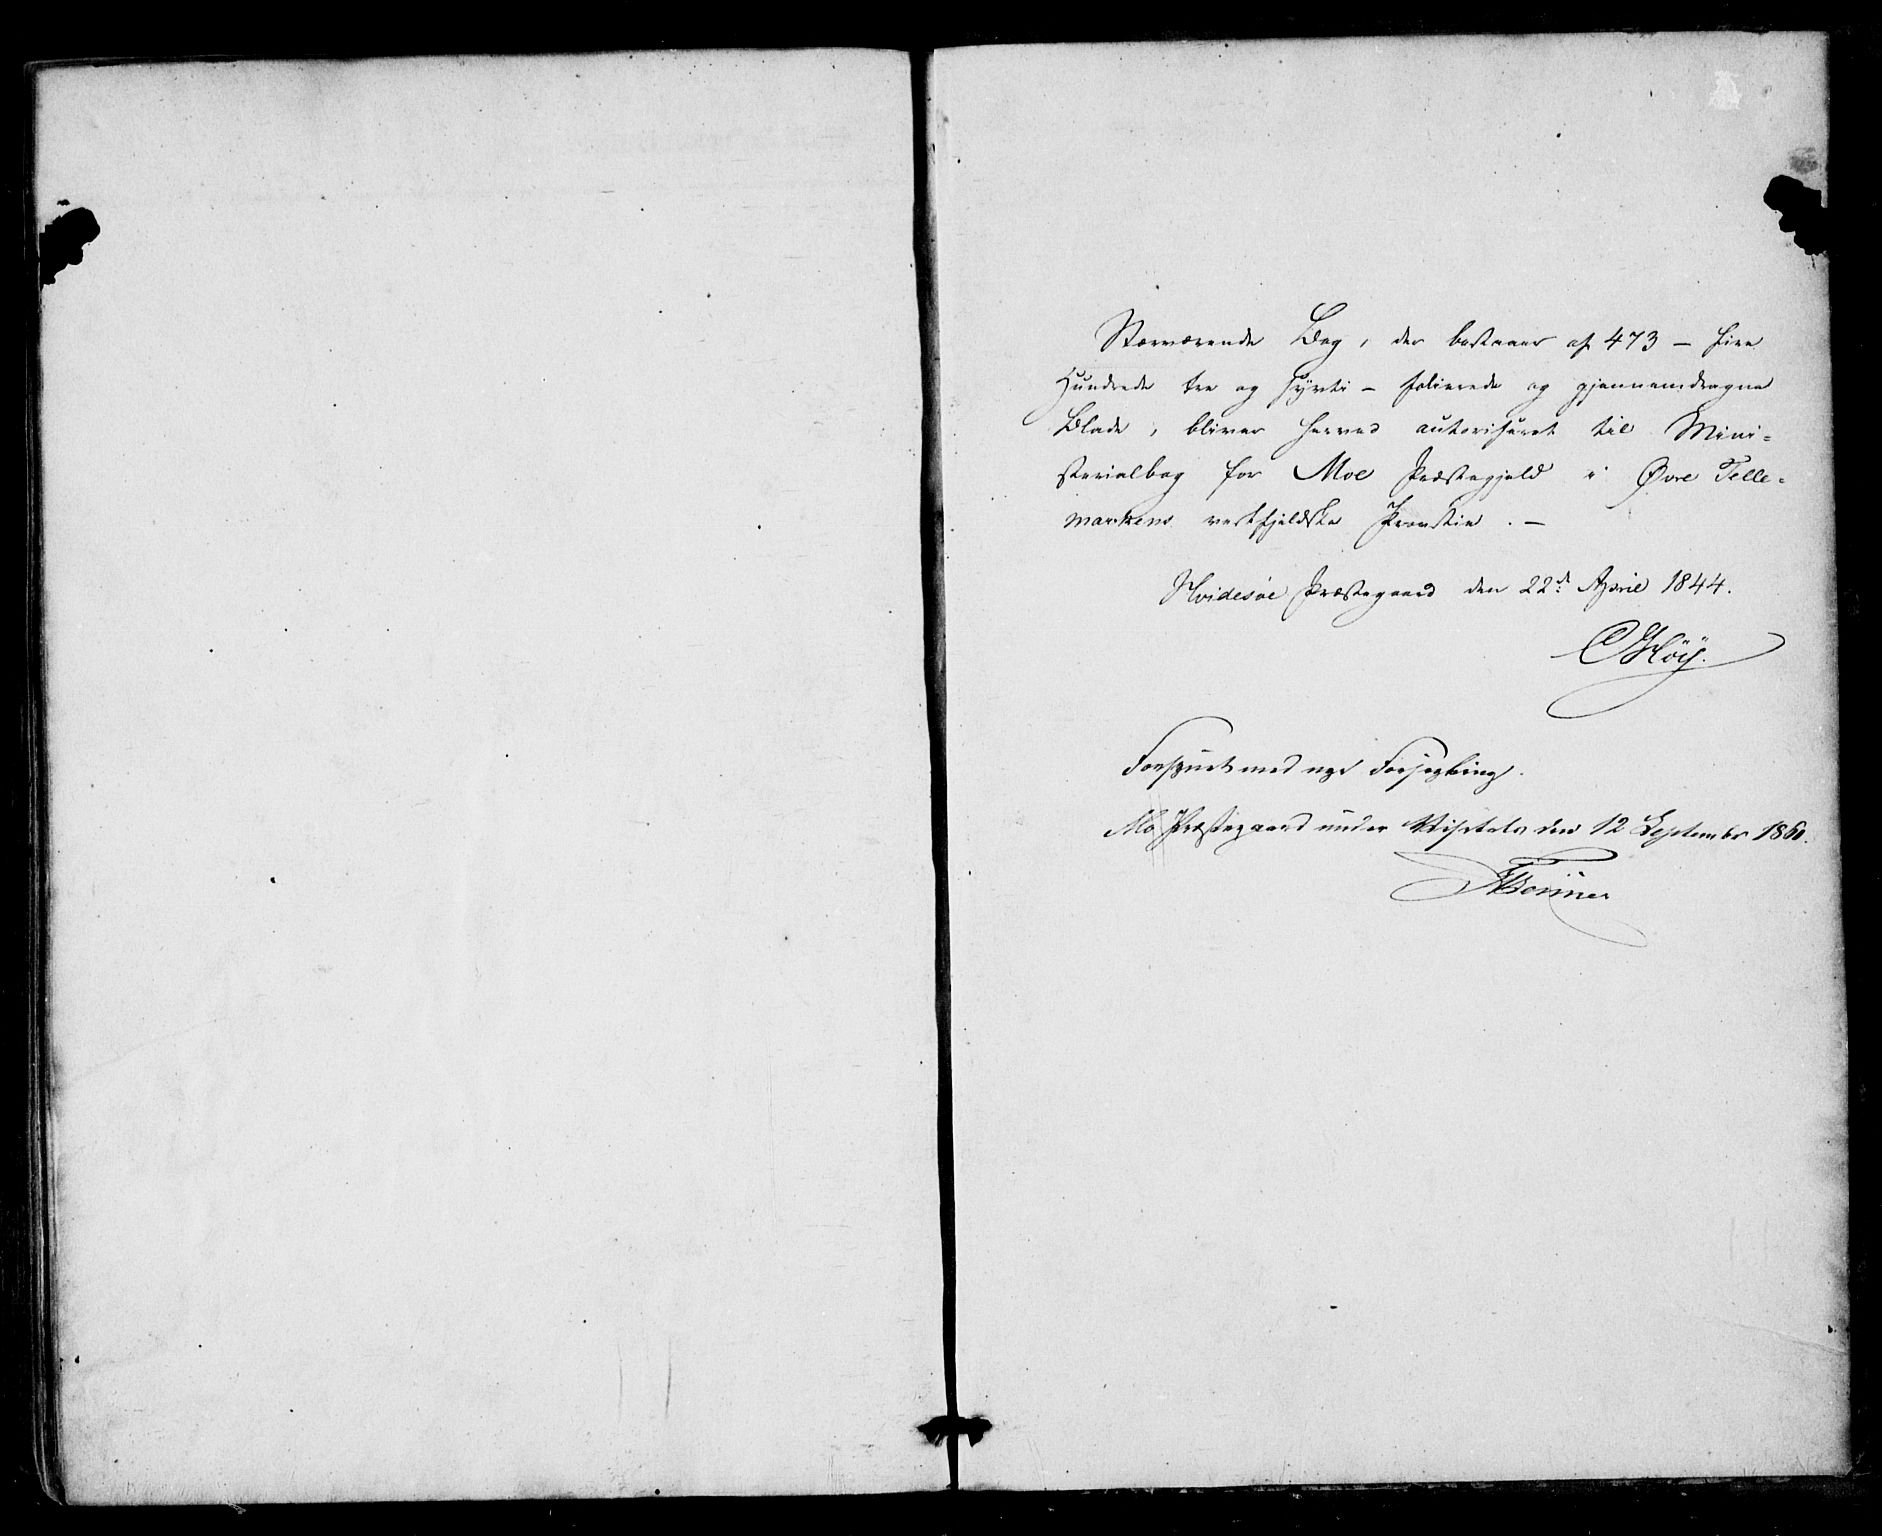 Nærværende Bog, der bestaaer af 473 – fire
Hundrede tre og syvti – folierede og gjennemdragne
Blade, bliver herved autoriseret til Mini-
sterialbog for Moe Præstegjeld i Øvre Telle-
markens vestfjeldske Provstie. –
Hvidesøe Præstegaard den 22d April 1844.
C Høÿ.
Forsÿnet med nye Forsegling.
Mo Præstegaard under Visitats den 12 September 1860.